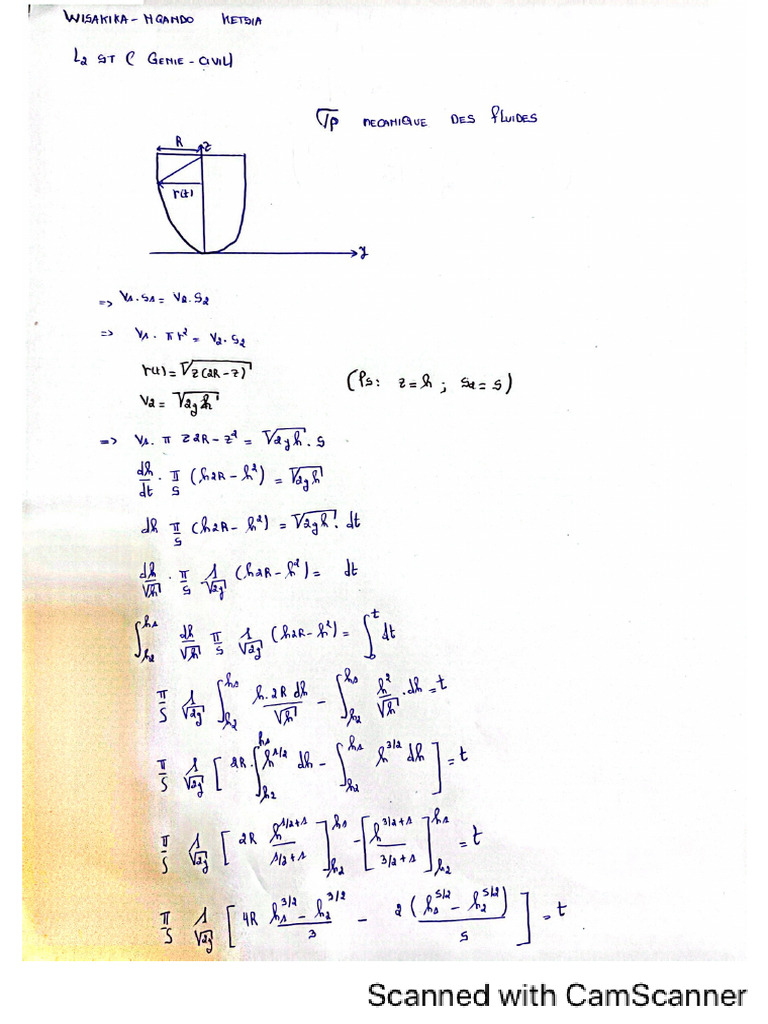 WISAKIKA - NGANDO KETSIA
L2 ST ( GENIE - CIVIL)
TP MECANIQUE DES fLUIDES
R
z
r(t)
y
=> V1.S1 = V2.S2
=> V1. πr² = V2.S2
r(t) = √z(2R-z)
(Ps: z=h ; S2 = s)
V2 = √2gh
=> V1. π z2R - z² = √2gh . s
dh/dt . π/s (h2R - h²) = √2gh
dh π/s (h2R - h²) = √2gh . dt
dh/√h . π/s 1/√2g (h2R - h²) = dt
∫h2^h1 dh/√h π/s 1/√2g (h2R - h²) = ∫0^t dt
π/s 1/√2g ∫h2^h1 h.2R dh/√h - ∫h2^h1 h²/√h .dh = t
π/s 1/√2g [ 2R.∫h2^h1 h^1/2 dh - ∫h2^h1 h^3/2 dh ] = t
π/s 1/√2g [ 2R h^1/2+1 / 1/2+1 ]h2^h1 - [ h^3/2+1 / 3/2+1 ]h2^h1 = t
π/s 1/√2g [ 4R h1^3/2 - h2^3/2 / 3 - 2(h1^5/2 - h2^5/2) / 5 ] = t
Scanned with CamScanner